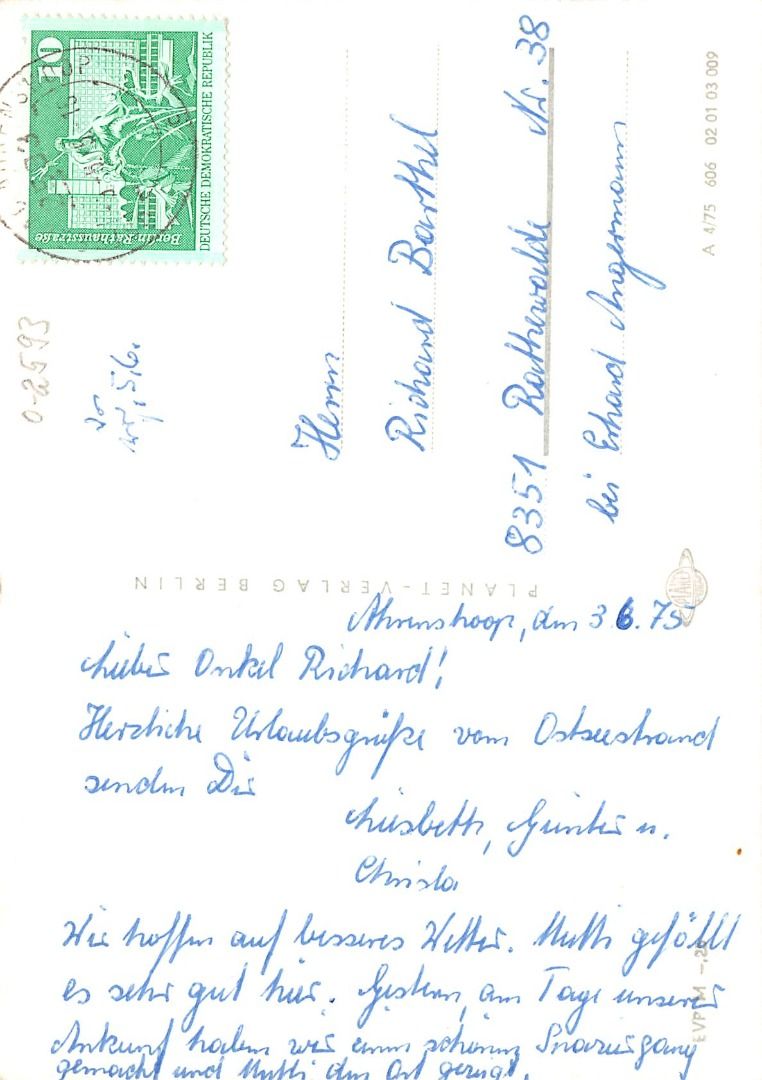 Ahrenshoop, den 3.6.75
Lieber Onkel Richard!
Herzliche Urlaubsgrüße vom Ostseestrand
senden Dir
Liesbeth, Günter u.
Christa
Wir hoffen auf besseres Wetter. Mutti gefällt
es sehr gut hier. Gestern, am Tage unserer
Ankunft haben wir einen schönen Spaziergang
gemacht und Mutti den Ort gezeigt.
Herrn
Richard Barthel
8351 Rathewalde Nr. 38
bei Erhard Angermann
10
DEUTSCHE DEMOKRATISCHE REPUBLIK
Berlin-Rathausstraße
0-2593
5.6.
PLANET-VERLAG BERLIN
PLANET
A 4/75 606 02 01 03 009
EVP M -,20